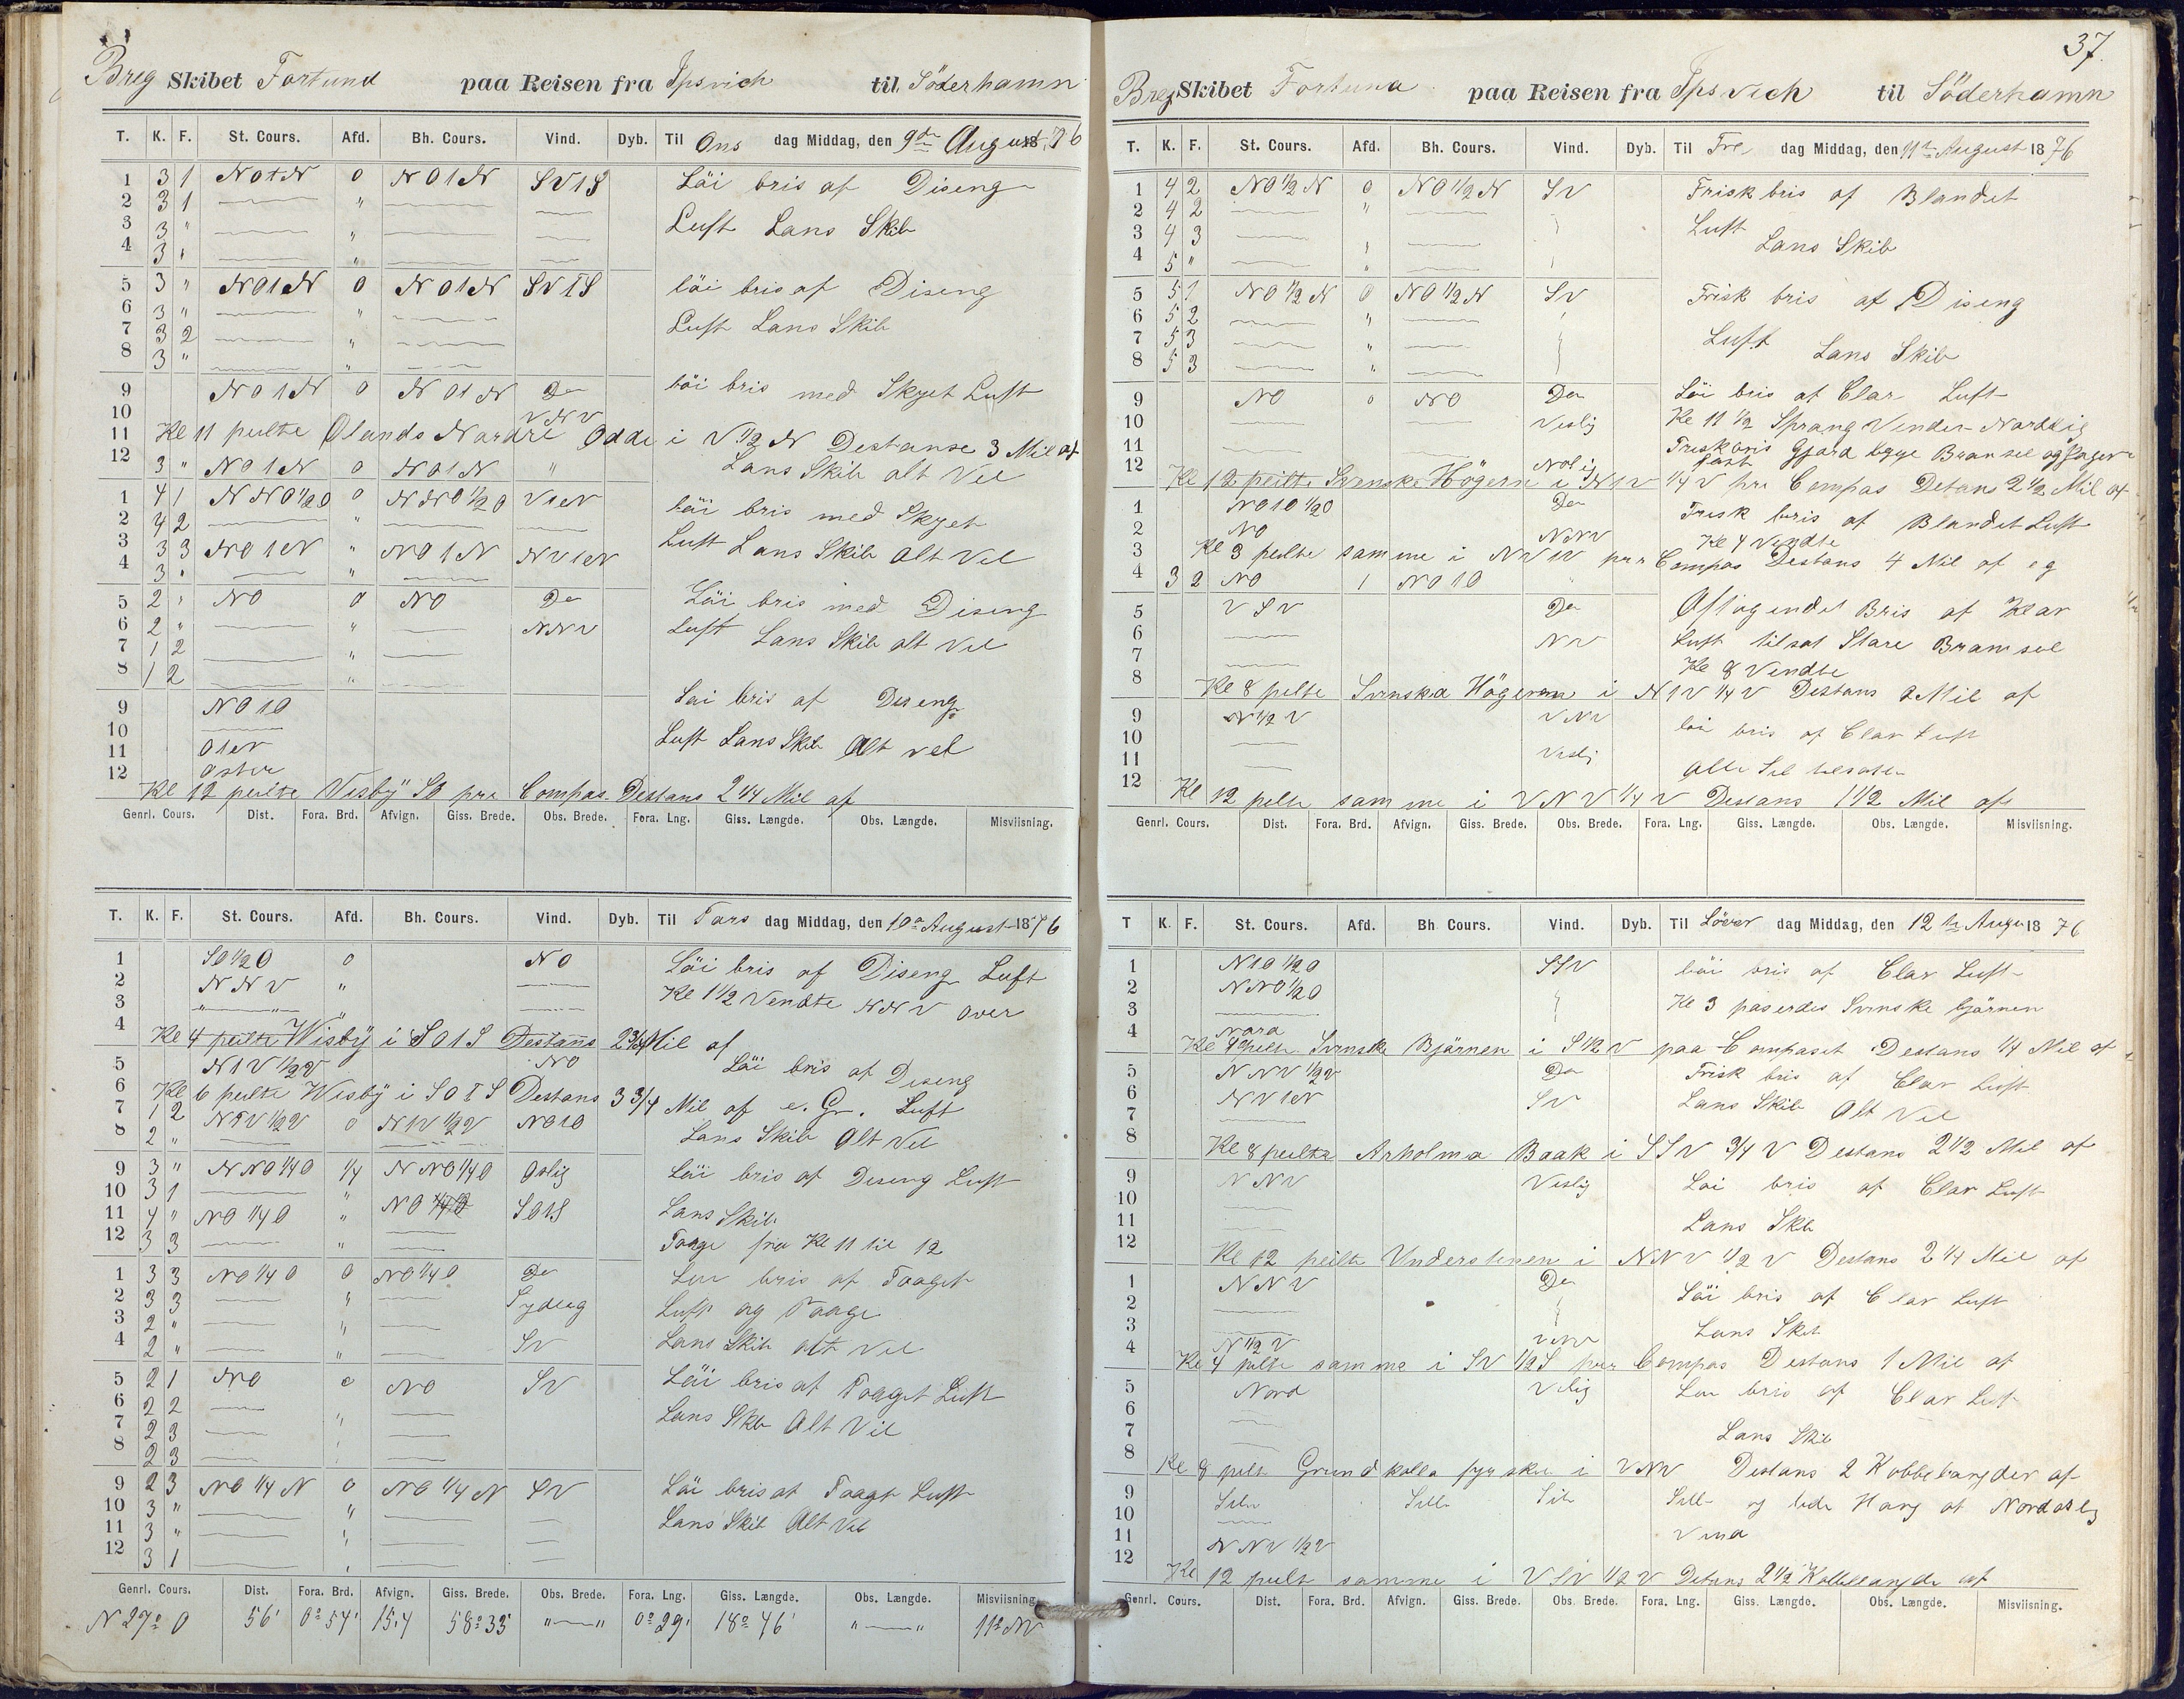 Breg Skibet Fortuna paa Reisen fra Ipsvich til Söderhamn
T. K. F. St. Cours. Afd. Bh. Cours. Vind. Dyb. Til Ons dag Middag, den 9de August 1876
1 3 1 NO1N 0 NO1N SV1S Löi bris af Diseng
2 3 1 "
3 3 " " Luft Lans Skib
4 3 " "
5 3 " NO1N 0 NO1N SV1S löi bris af Diseng
6 3 " "
7 3 2 " Luft Lans Skib
8 3 " "
9 NO1N 0 NO1N Do löi bris med Skyet Luft
10 VNV
11 Kl 11 peilte Ølands Nordre Odde i V 1/2 N Destanse 3 Mil af
12 3 " NO1N 0 NO1N " Lans Skib alt Vel
1 4 1 NNO 1/2 O 0 NNO 1/2 O V1N löi bris med Skyet
2 4 2 "
3 3 3 NO1N " NO1N NV1N Luft Lans Skib alt Vel
4 3 " "
5 2 " NO 0 NO Do Löi bris med Diseng
6 2 " " NNV Luft Lans Skib alt Vel
7 1 2 "
8 1 2 "
9 NO1O Löi bris af Diseng
10
11 O1N Luft Lans Skib Alt vel
12 Oster
Kl 12 peilte Visby SO pr Compas Destans 2 1/4 Mil af
Genrl. Cours. Dist. Fora. Brd. Afvign. Giss. Brede. Obs. Brede. Fora. Lng. Giss. Længde. Obs. Længde. Misviisning.
T. K. F. St. Cours. Afd. Bh. Cours. Vind. Dyb. Til Tors dag Middag, den 10de August 1876
1 SO 1/2 O 0 NO Löi bris af Diseng Luft
2 NNV " Kl 1 1/2 Vendte NNV over
3 " "
4 Kl 4 peilte Wisby i SO1S Destans 2 3/4 Mil af
5 N1V 1/2 V NO Löi bris af Diseng
6 Kl 6 peilte Wisby i SO1S Destans 3 3/4 Mil af e. Gr. Luft
7 1 2 N1V 1/2 V 0 N1V 1/2 V NO1O
8 2 " Lans Skib Alt Vel
9 3 " NNO 1/4 O 1/4 NNO 1/4 O Oslig Löi bris af Diseng Luft
10 3 1 "
11 4 " NO 1/4 O " NO 1/4 O SO1S Lans Skib
12 3 3 " Taage fra Kl 11 til 12
1 3 3 NO 1/4 O 0 NO 1/4 O Do Löi bris af Taaget
2 3 3 " Sydleg Luft og Taage
3 2 " "
4 2 " " SV Lans Skib alt Vel
5 2 1 NO 0 NO SV Löi bris af Taaget Luft
6 2 2
7 2 3 " Lans Skib Alt Vel
8 2 3
9 2 3 NO 1/4 N 0 NO 1/4 N SV Löi bris af Taaget Luft
10 3 " " Lans Skib Alt Vel
11 3 " "
12 3 1 "
Genrl. Cours. Dist. Fora. Brd. Afvign. Giss. Brede. Obs. Brede. Fora. Lng. Giss. Længde. Obs. Længde. Misviisning.
N 27° O 56' 0° 54' 15,4 58° 35' "—" 0° 29' 18° 46' "—" 11° NV
37.
Breg Skibet Fortuna paa Reisen fra Ipsvich til Söderhamn
T. K. F. St. Cours. Afd. Bh. Cours. Vind. Dyb. Til Fre dag Middag, den 11te August 1876
1 4 2 NO 1/2 N 0 NO 1/2 N SV Frisk bris af Blandet
2 4 2 "
3 4 3 Luft
4 5 " " Lans Skib
5 5 1 NO 1/2 N 0 NO 1/2 N SV Frisk bris af Diseng
6 5 2 "
7 5 3 " Luft
8 5 3 " Lans Skib
9 NO 0 NO Do Löi bris af Clar Luft
10 Veslig Kl 11 1/2 Sprang Vinden Nordlig
11 Frisk bris
12 Kl 12 peilte Svenske Högern i N1V 1/4 V pr Compas Detans 2 1/2 Mil af
1 NO1O 1/2 O Do Frisk bris af Blandet Luft
2 NO NNV Kl 4 Vendte
3 Kl 3 peilte samme i NV1V pr Compas Destans 4 Mil af eg
4 3 2 NO 1 NO1O
5 VSV Do Aftagendet Bris af Klar
6 NV Luft tilsat Store Bramseil
7 Kl 8 Vendte
8 Kl 8 pelte Svenska Högeren i N1V 1/4 V Destans 2 Mil af
9 N 1/2 V VNV löi bris af Clar Luft
10
11 Veslig Alle Seil
12 Kl 12 pelte samme i VNV 1/4 V Destans 1 1/2 Mil af
Genrl. Cours. Dist. Fora. Brd. Afvign. Giss. Brede. Obs. Brede. Fora. Lng. Giss. Længde. Obs. Længde. Misviisning.
T K. F. St. Cours. Afd. Bh Cours. Vind. Dyb. Til Löver dag Middag, den 12te Augu 1876
1 N1O 1/2 O SSV löi bris af Clar Luft
2 NNO 1/2 O Kl 3 paserdes Svenske bjärnen
3
4 Nora
Kl 4 peilte Svenske Bjärnen i S 1/2 V paa Compaset Destans 1/4 Mil af
5 NNV 1/2 V Do Frisk bris af Clar Luft
6 NV1N SV Lans Skib Alt Vel
7
8 Kl 8 peilte Arholma Baak i SSV 3/4 V Destans 2 1/2 Mil af
9 NNV Veslig Löi bris af Clar Luft
10
11 Lans Skib
12 Kl 12 peilte Understenen i NNV 1/2 V Destans 2 1/4 Mil af
1 NNV Do Löi bris af Clar Luft
2
3 Lans Skib
4 N 1/2 V VNV
Kl 4 pelte samme i SV 1/2 S per Compas Destans 1 Mil af
5 Nord Veslig Löi bris af Clar Luft
6
7 Lans Skib
8 Kl 8 pelt Grundkalla fyrskib i VNV Destans 2 Kobbelangder af
9 Stille Stille Stille Stille og lide Hang af Nordostlig
10
11 NNV 1/2 V Vind
12 Kl 12 peilt samme i VSV 1/2 V Detans 2 1/2 Kobbelangde af
Genrl. Cours. Dist. Fora. Brd. Afvign. Giss. Brede. Obs. Brede. Fora. Lng. Giss. Længde. Obs. Længde. Misviisning.